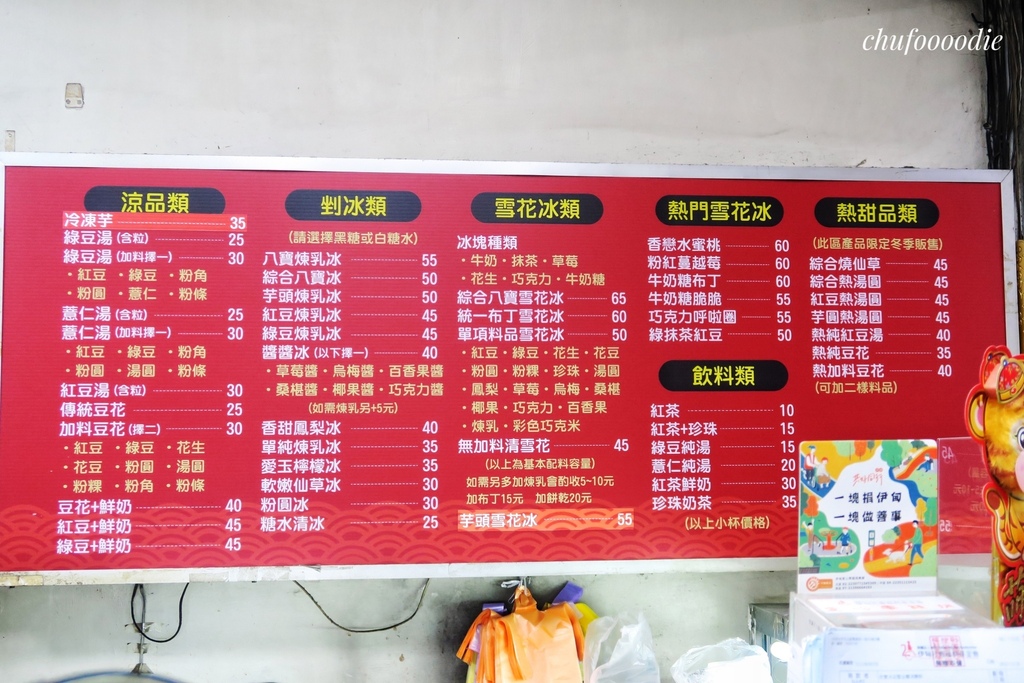 chufoooodie
涼品類
冷凍芋 35
綠豆湯(含粒) 25
綠豆湯(加料擇一) 30
・紅豆 ・綠豆 ・粉角
・粉圓 ・薏仁 ・粉條
薏仁湯(含粒) 25
薏仁湯(加料擇一) 30
・紅豆 ・綠豆 ・粉角
・粉圓 ・湯圓 ・粉條
紅豆湯(含粒) 30
傳統豆花 25
加料豆花(擇二) 30
・紅豆 ・綠豆 ・花生
・花豆 ・粉圓 ・湯圓
・粉粿 ・粉角 ・粉條
豆花+鮮奶 40
紅豆+鮮奶 45
綠豆+鮮奶 45
剉冰類
(請選擇黑糖或白糖水)
八寶煉乳冰 55
綜合八寶冰 50
芋頭煉乳冰 50
紅豆煉乳冰 45
綠豆煉乳冰 45
醬醬冰(以下擇一) 40
・草莓醬・烏梅醬・百香果醬
・桑椹醬・椰果醬・巧克力醬
(如需煉乳另+5元)
香甜鳳梨冰 40
單純煉乳冰 35
愛玉檸檬冰 35
軟嫩仙草冰 30
粉圓冰 30
糖水清冰 25
雪花冰類
冰塊種類
・牛奶・抹茶・草莓
・花生・巧克力・牛奶糖
綜合八寶雪花冰 65
統一布丁雪花冰 60
單項料品雪花冰 50
・紅豆・綠豆・花生・花豆
・粉圓・粉粿・珍珠・湯圓
・鳳梨・草莓・烏梅・桑椹
・椰果・巧克力・百香果
・煉乳・彩色巧克米
無加料清雪花 45
(以上為基本配料容量)
如需另多加煉乳會酌收5~10元
加布丁15元 加餅乾20元
芋頭雪花冰 55
熱門雪花冰
香戀水蜜桃 60
粉紅蔓越莓 60
牛奶糖布丁 60
牛奶糖脆脆 55
巧克力呼啦圈 55
綠抹茶紅豆 50
飲料類
紅茶 10
紅茶+珍珠 15
綠豆純湯 15
薏仁純湯 20
紅茶鮮奶 30
珍珠奶茶 35
(以上小杯價格)
熱甜品類
(此區產品限定冬季販售)
綜合燒仙草 45
綜合熱湯圓 45
紅豆熱湯圓 45
芋圓熱湯圓 45
熱純紅豆湯 40
熱純豆花 35
熱加料豆花 40
(可加二樣料品)
一塊捐伊甸
一塊做善事